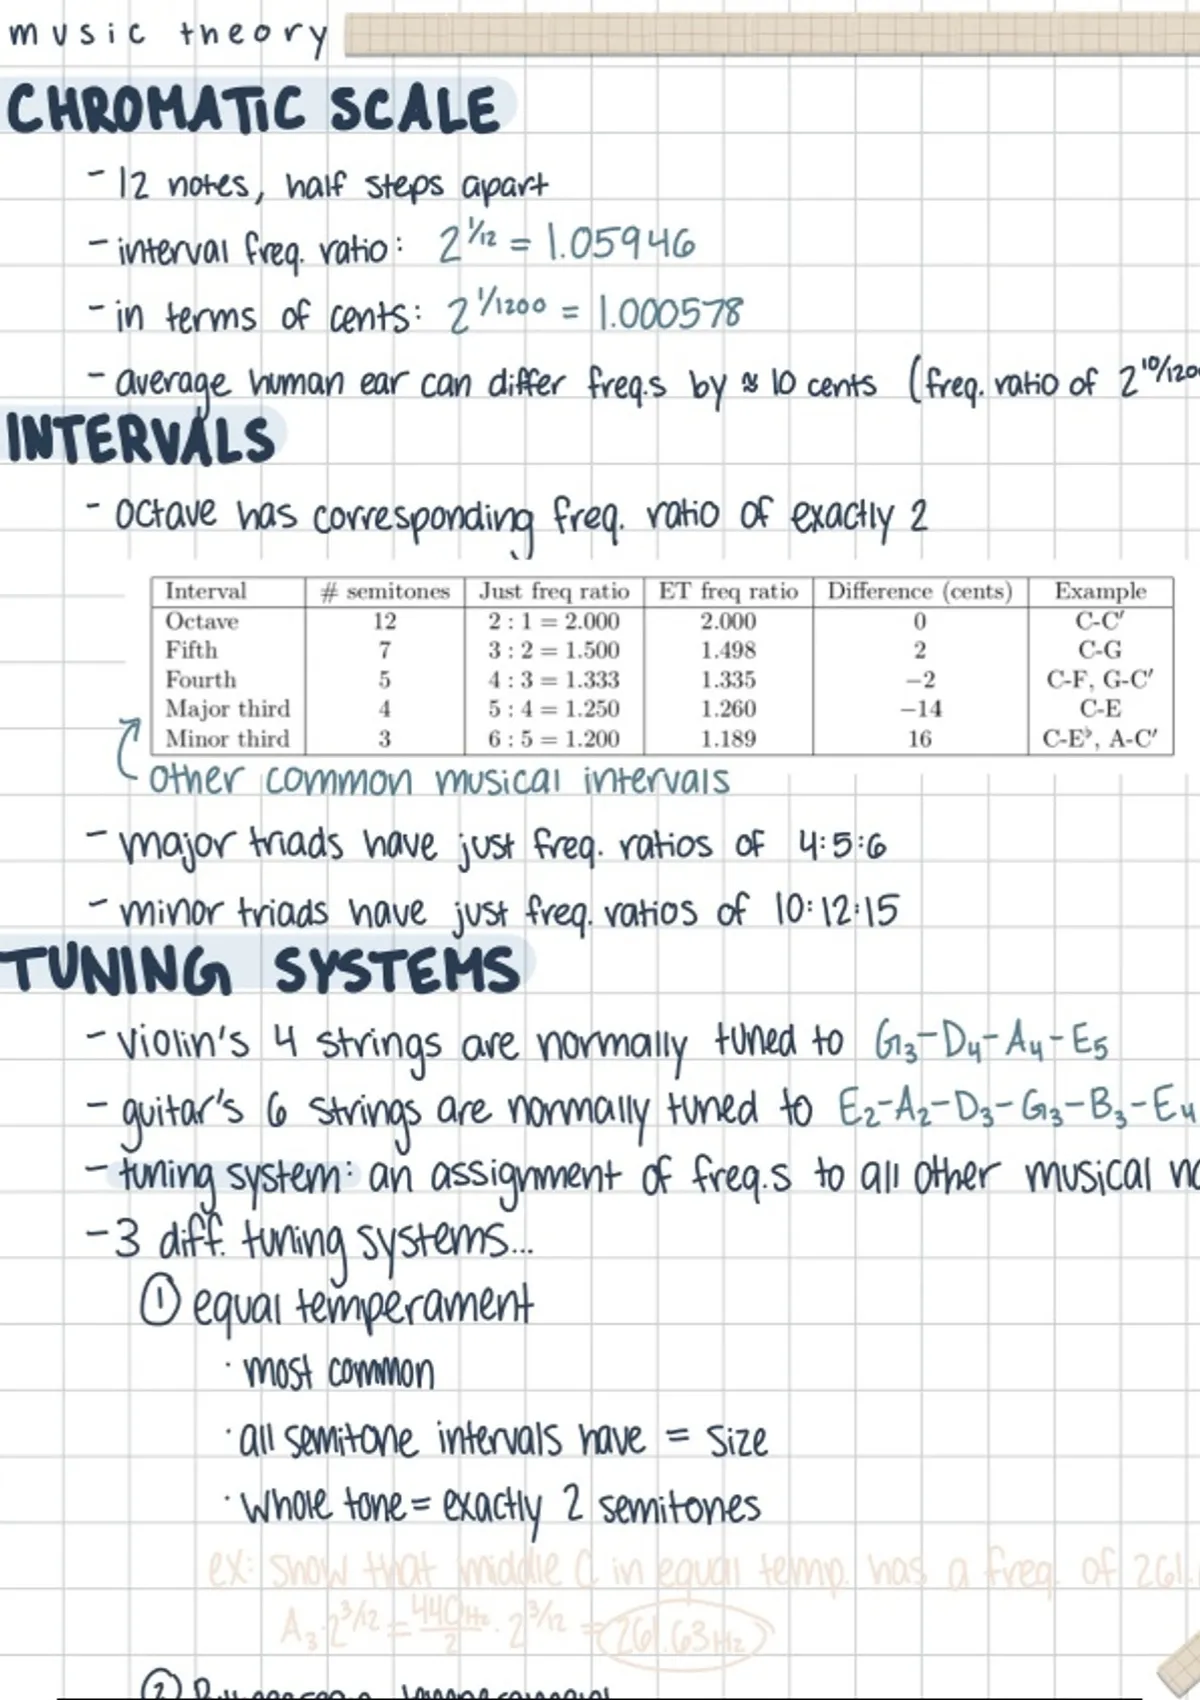 music theory
CHROMATIC SCALE
- 12 notes, half steps apart
- interval freq. ratio: 2^1/12 = 1.05946
- in terms of cents: 2^1/1200 = 1.000578
- average human ear can differ freq.s by ≈ 10 cents (freq. ratio of 2^10/120
INTERVALS
- octave has corresponding freq. ratio of exactly 2
Interval # semitones Just freq ratio ET freq ratio Difference (cents) Example
Octave 12 2 : 1 = 2.000 2.000 0 C-C′
Fifth 7 3 : 2 = 1.500 1.498 2 C-G
Fourth 5 4 : 3 = 1.333 1.335 −2 C-F, G-C′
Major third 4 5 : 4 = 1.250 1.260 −14 C-E
Minor third 3 6 : 5 = 1.200 1.189 16 C-E♭, A-C′
other common musical intervals
- major triads have just freq. ratios of 4:5:6
- minor triads have just freq. ratios of 10:12:15
TUNING SYSTEMS
- violin's 4 strings are normally tuned to G₃-D₄-A₄-E₅
- guitar's 6 strings are normally tuned to E₂-A₂-D₃-G₃-B₃-E₄
- tuning system: an assignment of freq.s to all other musical no
- 3 diff. tuning systems...
① equal temperament
· most common
· all semitone intervals have = size
· whole tone = exactly 2 semitones
ex: show that middle C in equal temp. has a freq. of 261.
A₃·2^3/12 = 440Hz/2 · 2^3/12 = 261.63Hz
②